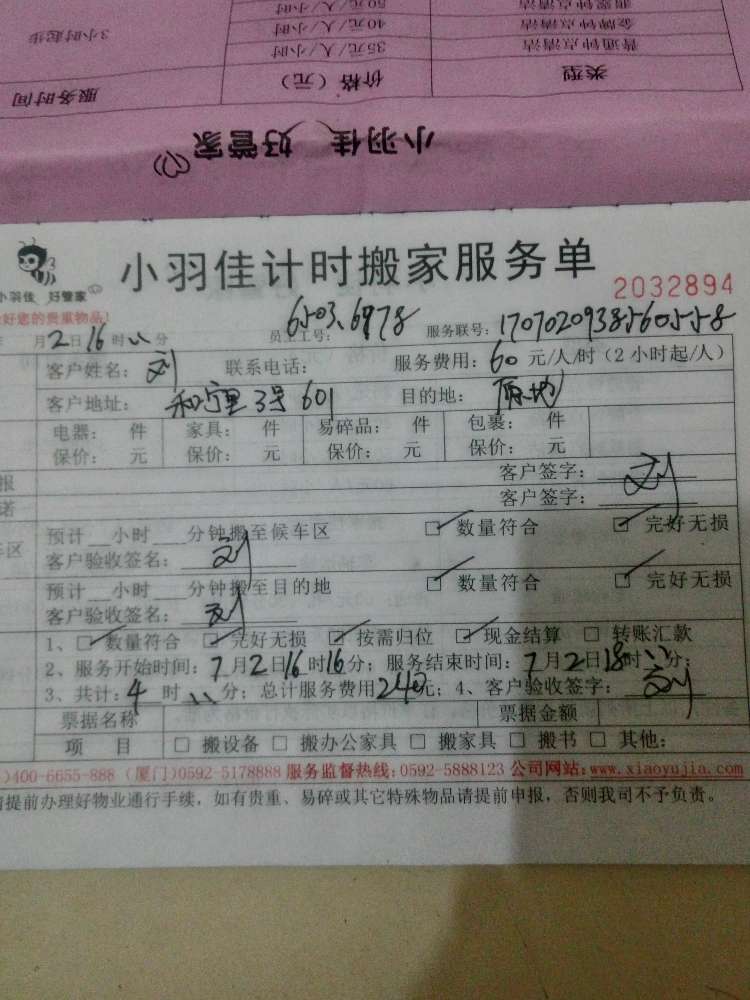 3小时起步
50元/人/小时
金牌钟点清洁 40元/人/小时
普通钟点清洁 35元/人/小时
类型 价格（元） 服务时间
小羽佳 好管家
小羽佳 好管家
小羽佳计时搬家服务单
2032894
好您的贵重物品！
月2日16时 分 员工工号：6503.6978 服务联号：
客户姓名：刘 联系电话： 服务费用：60元/人/时（2小时起/人）
客户地址：和宁里3号601 目的地：
电器： 件 家具： 件 易碎品： 件 包裹： 件
保价： 元 保价： 元 保价： 元 保价： 元
报 客户签字：刘
诺 客户签字：
预计__小时___分钟搬至候车区 □数量符合 □完好无损
车区 客户验收签名：刘
预计__小时___分钟搬至目的地 □数量符合 □完好无损
客户验收签名：刘
1、□数量符合 □完好无损 □按需归位 □现金结算 □转账汇款
2、服务开始时间：7月2日16时16分；服务结束时间：7月2日18时 分；
3、共计：4时 分；总计服务费用240元；4、客户验收签字：刘
票据名称 票据金额
项 目 □搬设备 □搬办公家具 □搬家具 □搬书 □其他：
)400-6655-888（厦门）0592-5178888 服务监督热线：0592-5888123 公司网站：www.xiaoyujia.com
请提前办理好物业通行手续，如有贵重、易碎或其它特殊物品请提前申报，否则我司不予负责。